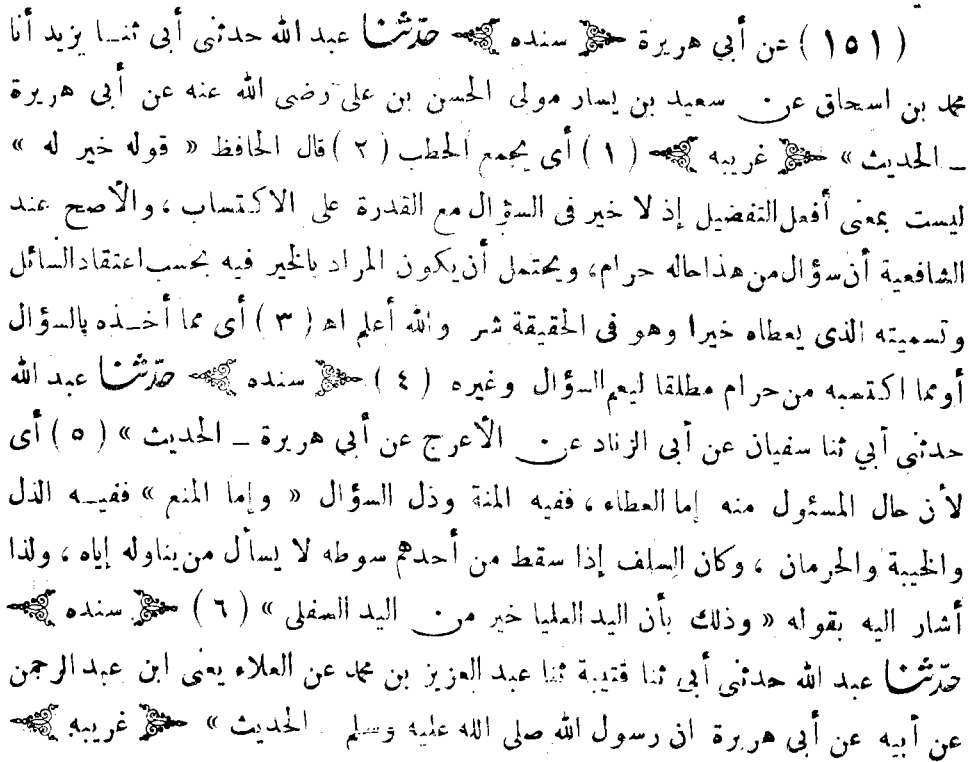 ( ١٥١ ) عن أبي هريرة ﴿ سنده ﴾ حدّثنا عبد الله حدثنى أبى ثنا يزيد أنا
محمد بن اسحاق عن سعيد بن يسار مولى الحسن بن على رضى الله عنه عن أبى هريرة
ــ الحديث » ﴿ غريبه ﴾ ( ١ ) أى يجمع الحطب ( ٢ ) قال الحافظ « قوله خير له »
ليست بمعنى أفعل التفضيل إذ لا خير فى السؤال مع القدرة على الاكتساب ، والأصح عند
الشافعية أن سؤال من هذا حاله حرام، ويحتمل أن يكون المراد بالخير فيه بحسب اعتقاد السائل
وتسميته الذى يعطاه خيرا وهو فى الحقيقة شر والله أعلم اهـ ( ٣ ) أى مما أخذه بالسؤال
أومما اكتسبه من حرام مطلقا ليعم السؤال وغيره ( ٤ ) ﴿ سنده ﴾ حدّثنا عبد الله
حدثنى أبي ثنا سفيان عن أبى الزناد عن الأعرج عن أبي هريرة ــ الحديث » ( ٥ ) أى
لأن حال المسئول منه إما العطاء ، ففيه المنة وذل السؤال « وإما المنع » ففيه الذل
والخيبة والحرمان ، وكان السلف إذا سقط من أحدهم سوطه لا يسأل من يناوله إياه ، ولذا
أشار اليه بقوله « وذلك بأن اليد العليا خير من اليد السفلى » ( ٦ ) ﴿ سنده ﴾
حدّثنا عبد الله حدثنى أبى ثنا قتيبة ثنا عبد العزيز بن محمد عن العلاء يعنى ابن عبد الرحمن
عن أبيه عن أبى هريرة ان رسول الله صلى الله عليه وسلم الحديث » ﴿ غريبه ﴾